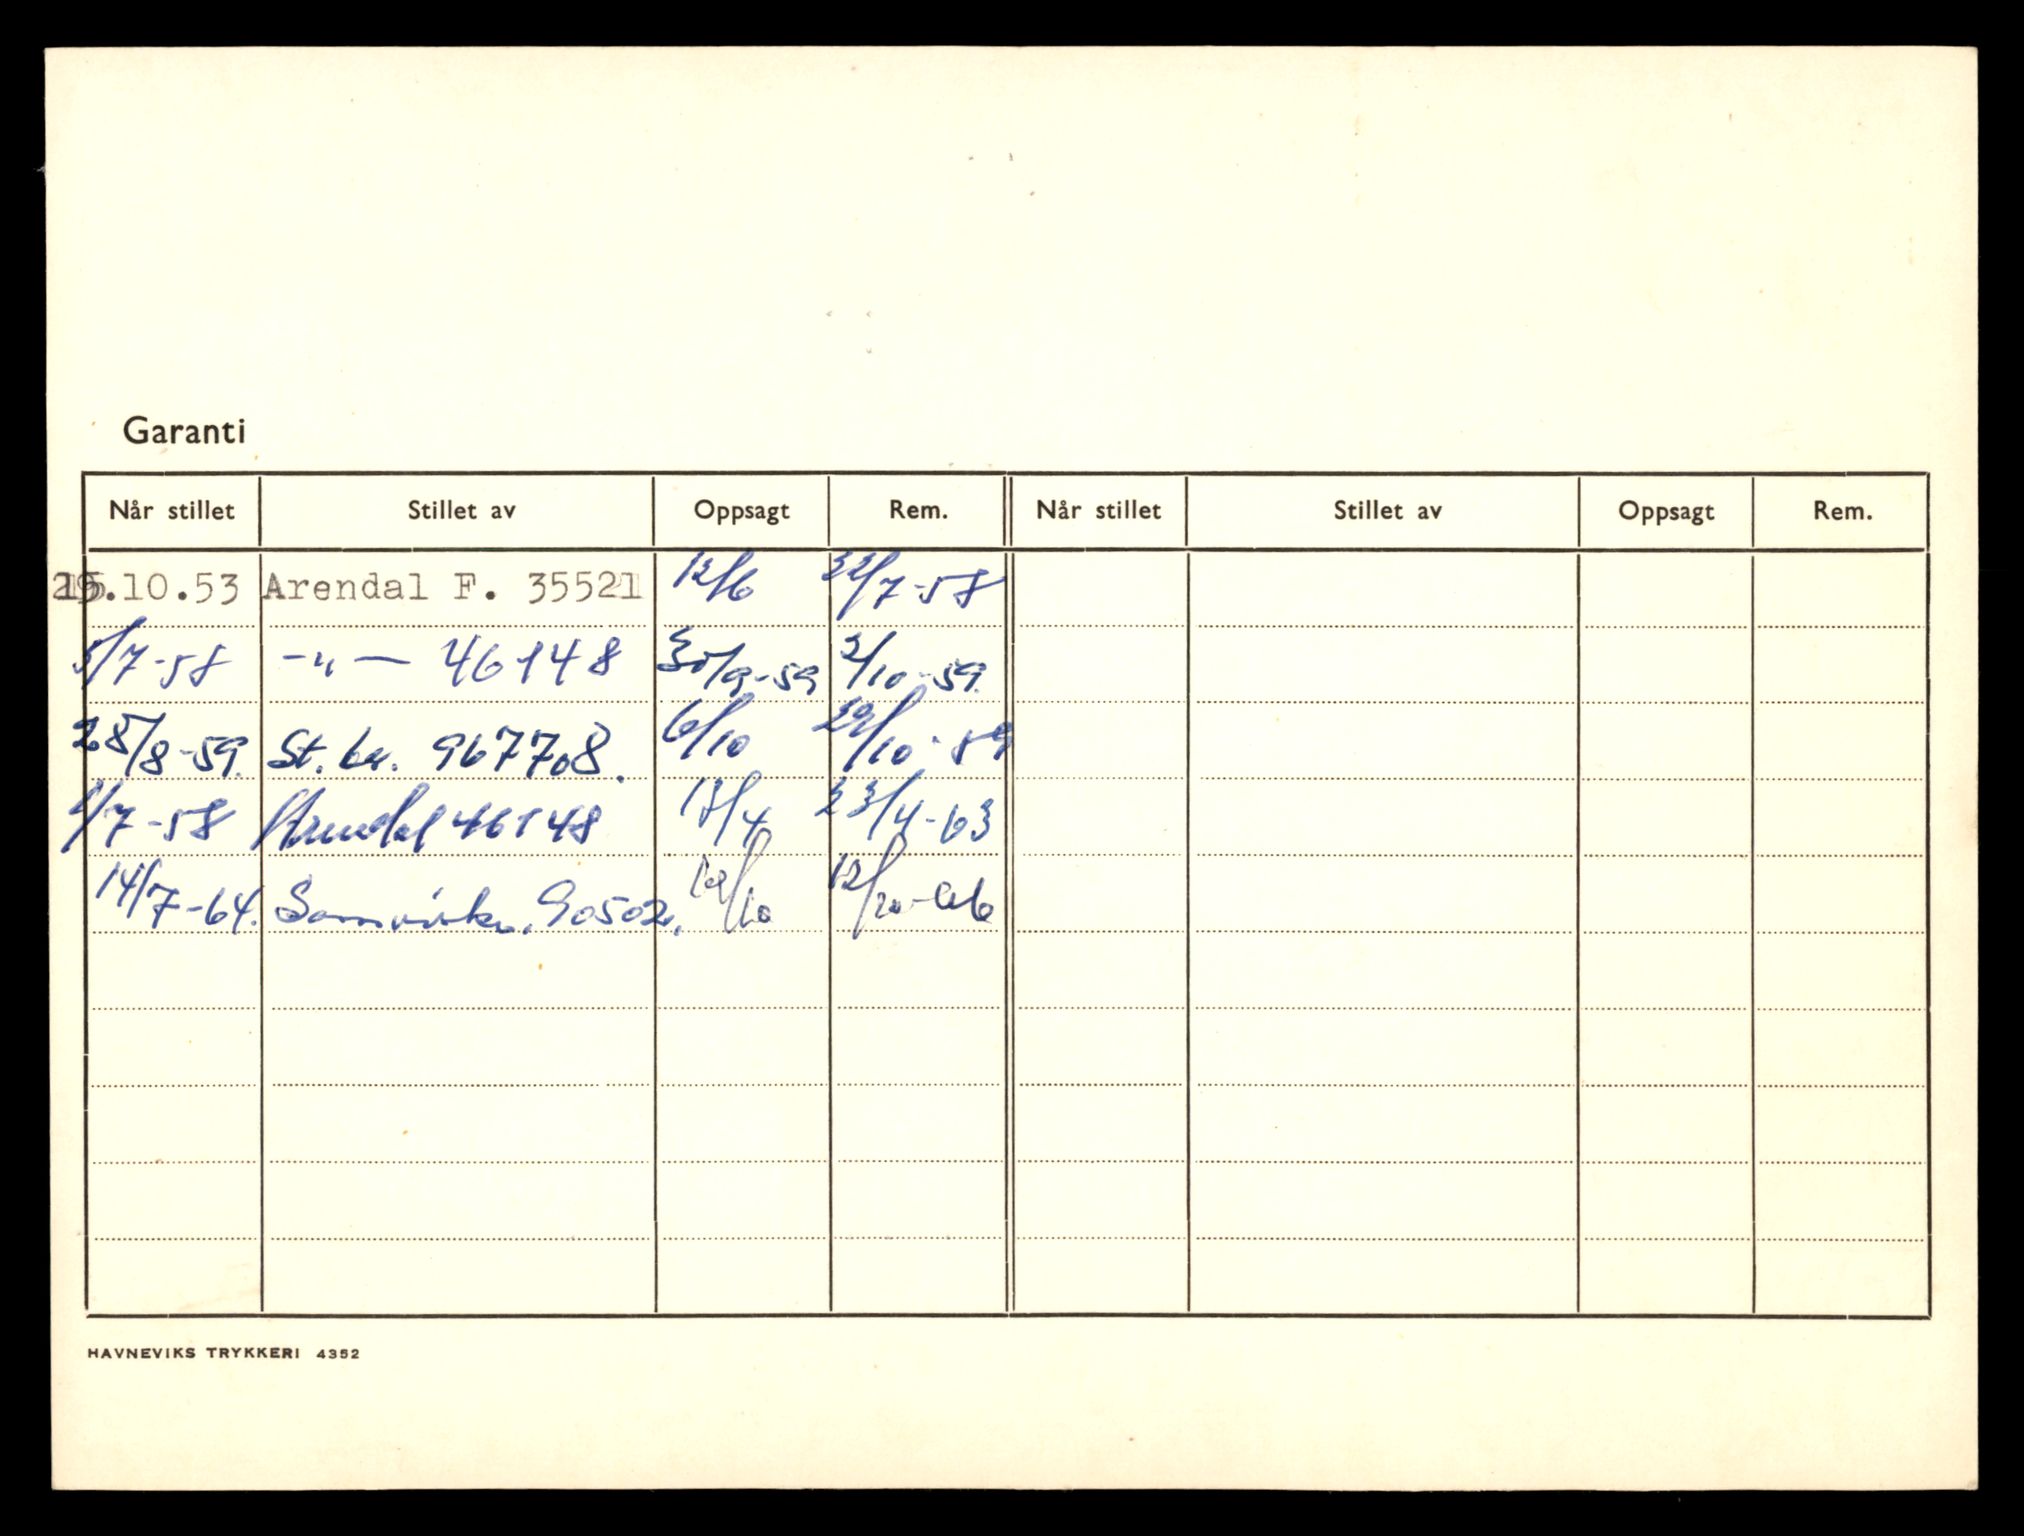 Garanti
Når stillet Stillet av Oppsagt Rem. Når stillet Stillet av Oppsagt Rem.
.10.53 Arendal F. 35521 12/6 /7-58
5/7-58 -"- 46148 30/9-59 2/10-59.
28/8-59. St. br. 967708. 6/10 29/10-59
/7-58 Arendal 46148 17/4 23/4-63
14/7-64. Samvirke. 90502. /10 12/10-66
HAVNEVIKS TRYKKERI 4352